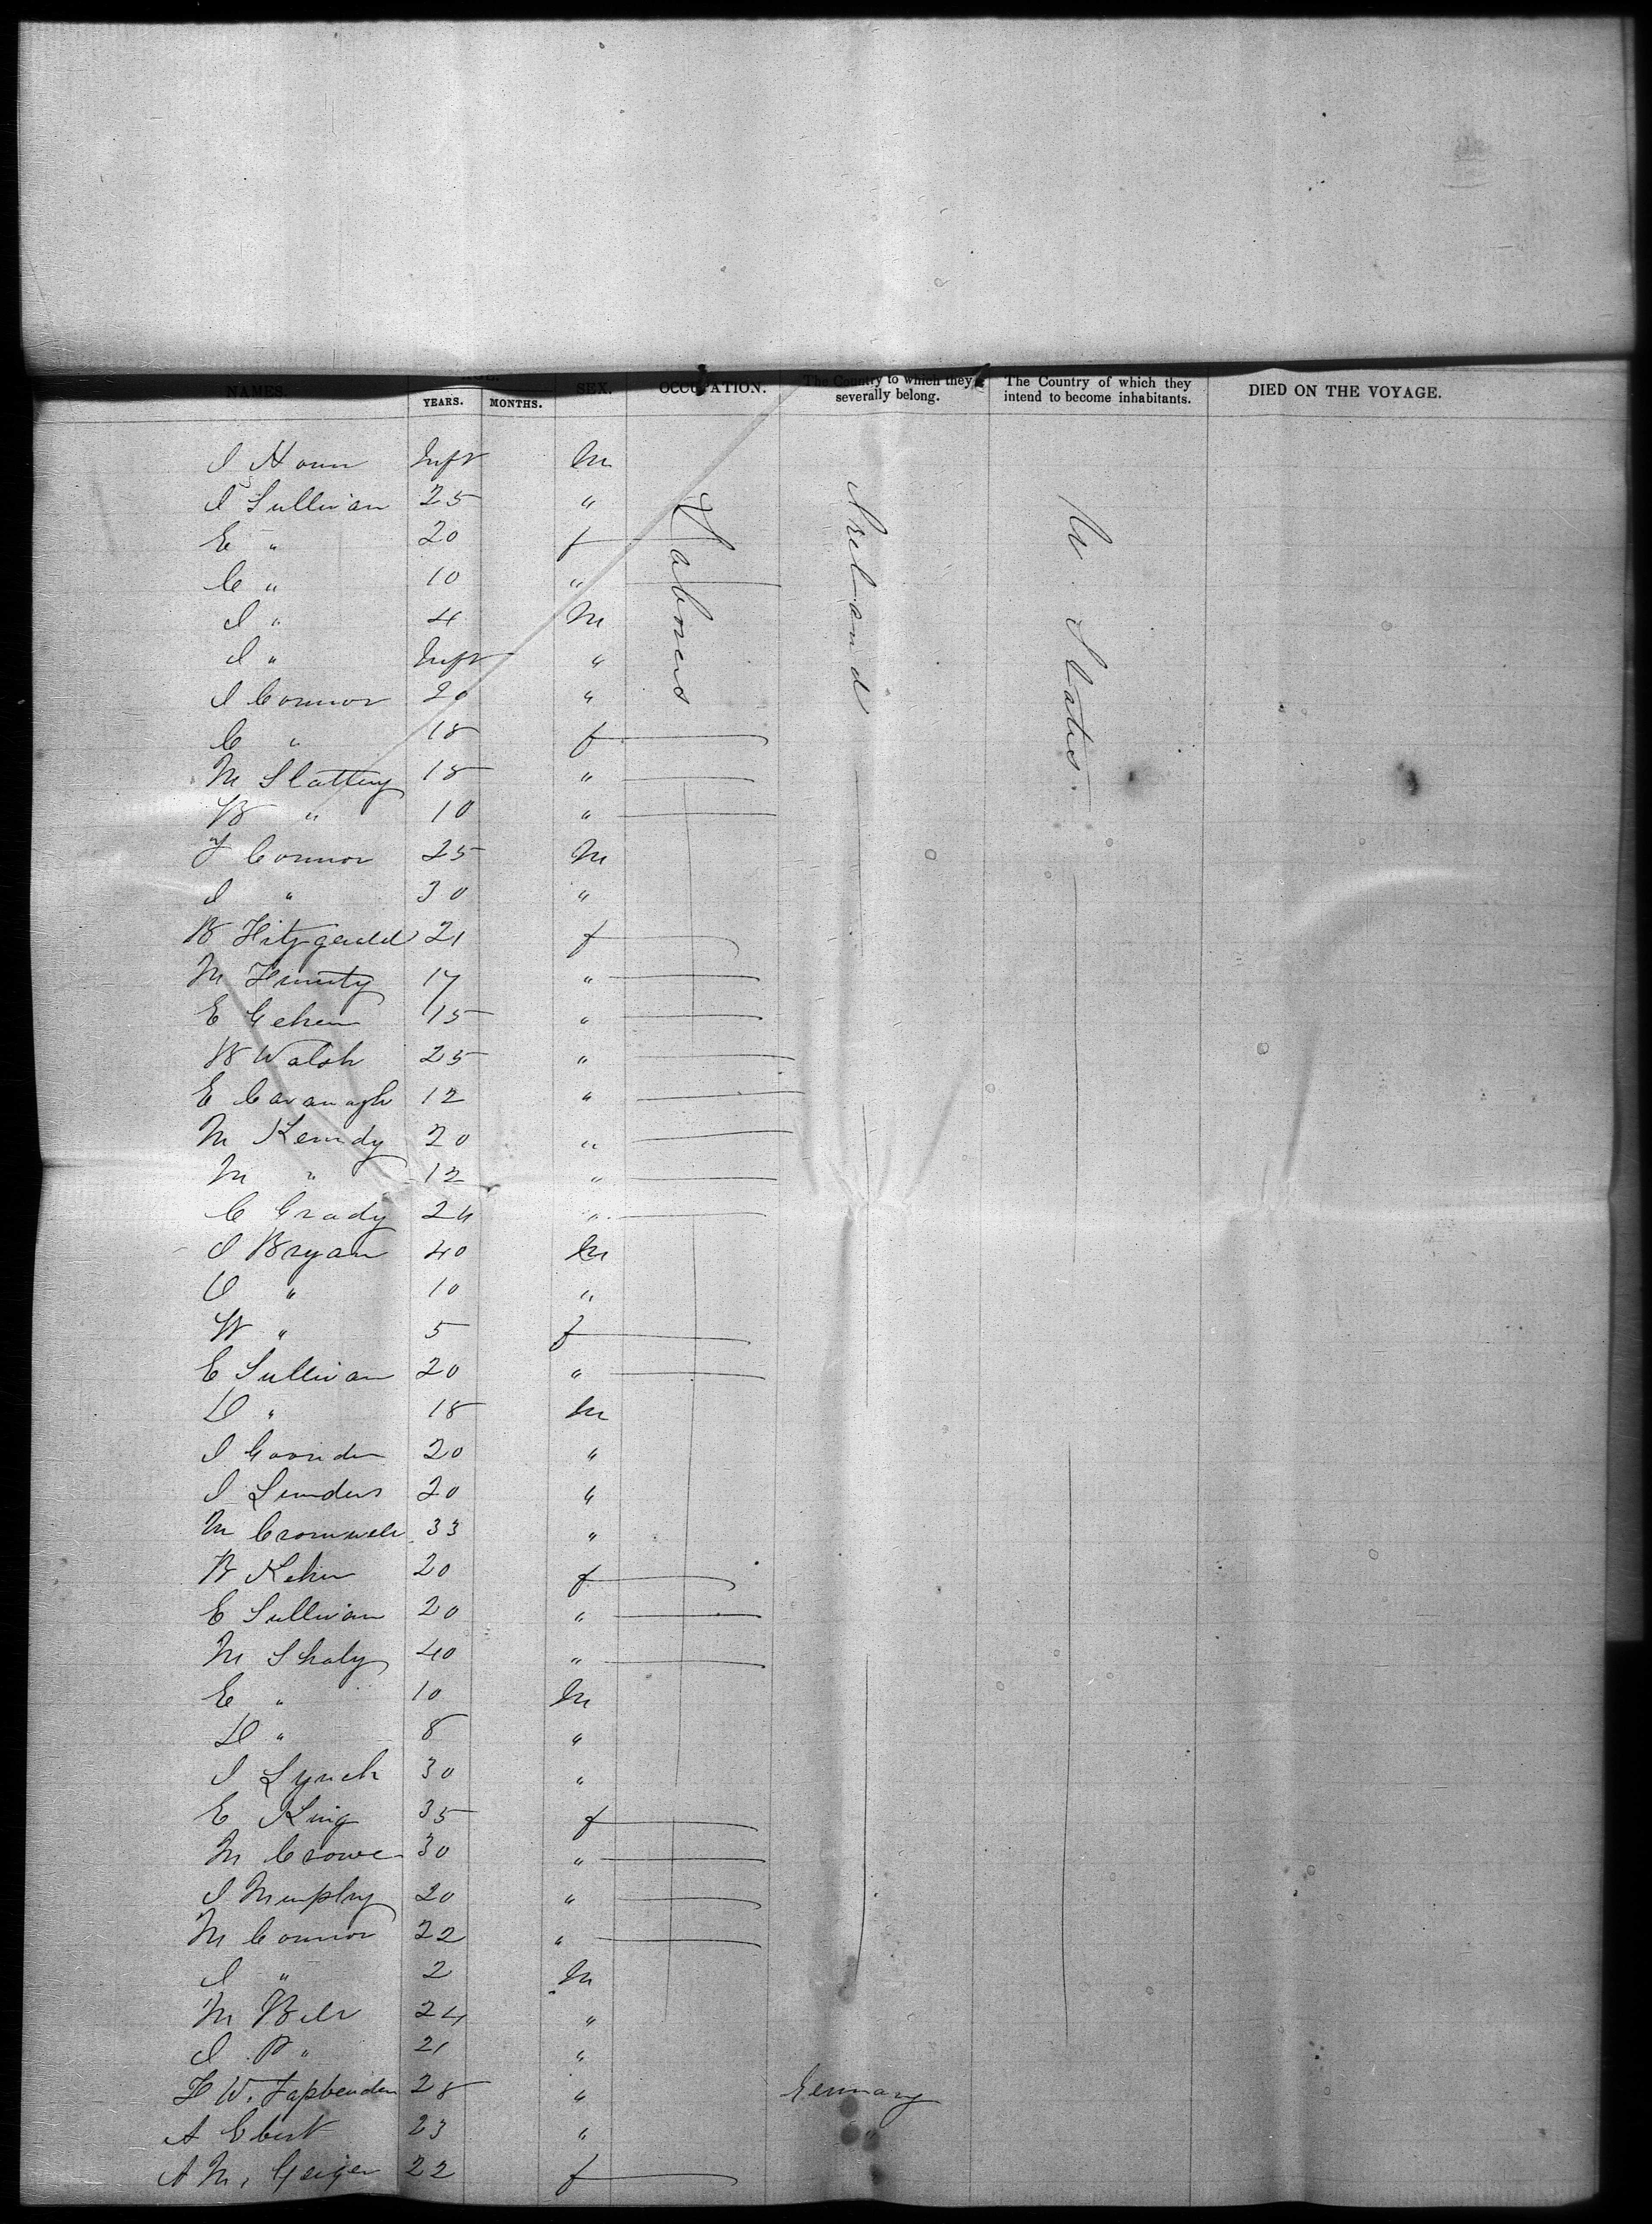 NAMES. AGE. YEARS. MONTHS. SEX. OCCUPATION. The Country to which they severally belong. The Country of which they intend to become inhabitants. DIED ON THE VOYAGE.
J Horin Inft M Labourers Ireland U. States
J Sullivan 25 "
E " 20 f
C " 10 "
J " 4 M
J " Inft "
J Connor 20 "
C " 18 f
M Slattery 18 "
B " 10 "
J Connor 25 M
J " 30 "
B Fitzgerald 21 f
M 17 "
E 15 "
B Walsh 25 "
E Cavanagh 12 "
M Kenndy 20 "
M " 12 "
C Grady 24 "
J Bryan 40 M
" 10 "
W " 5 f
E Sullivan 20 "
D " 18 M
J 20 "
J 20 "
M Cromwell 33 "
B 20 f
E Sullivan 20 "
M Shaly 40 "
E " 10 M
D " 8 "
J Lynch 30 "
E King 35 f
M Crowe 30 "
J Murphy 20 "
M Connor 22 "
J " 2 M
M Bell 24 "
J B " 21 "
F W. 28 " Germany
A Ebert 23 " "
A M. Geiger 22 f